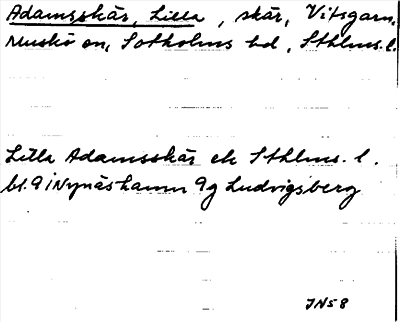 Adamsskär, Lilla, skär, Vitsgarn,
Muskö sn, Sotholms hd, Sthlms. l.
Lilla Adamsskär ek Sthlms. l.
bl. 9 i Nynäshamn 9g Ludvigsberg
JN58